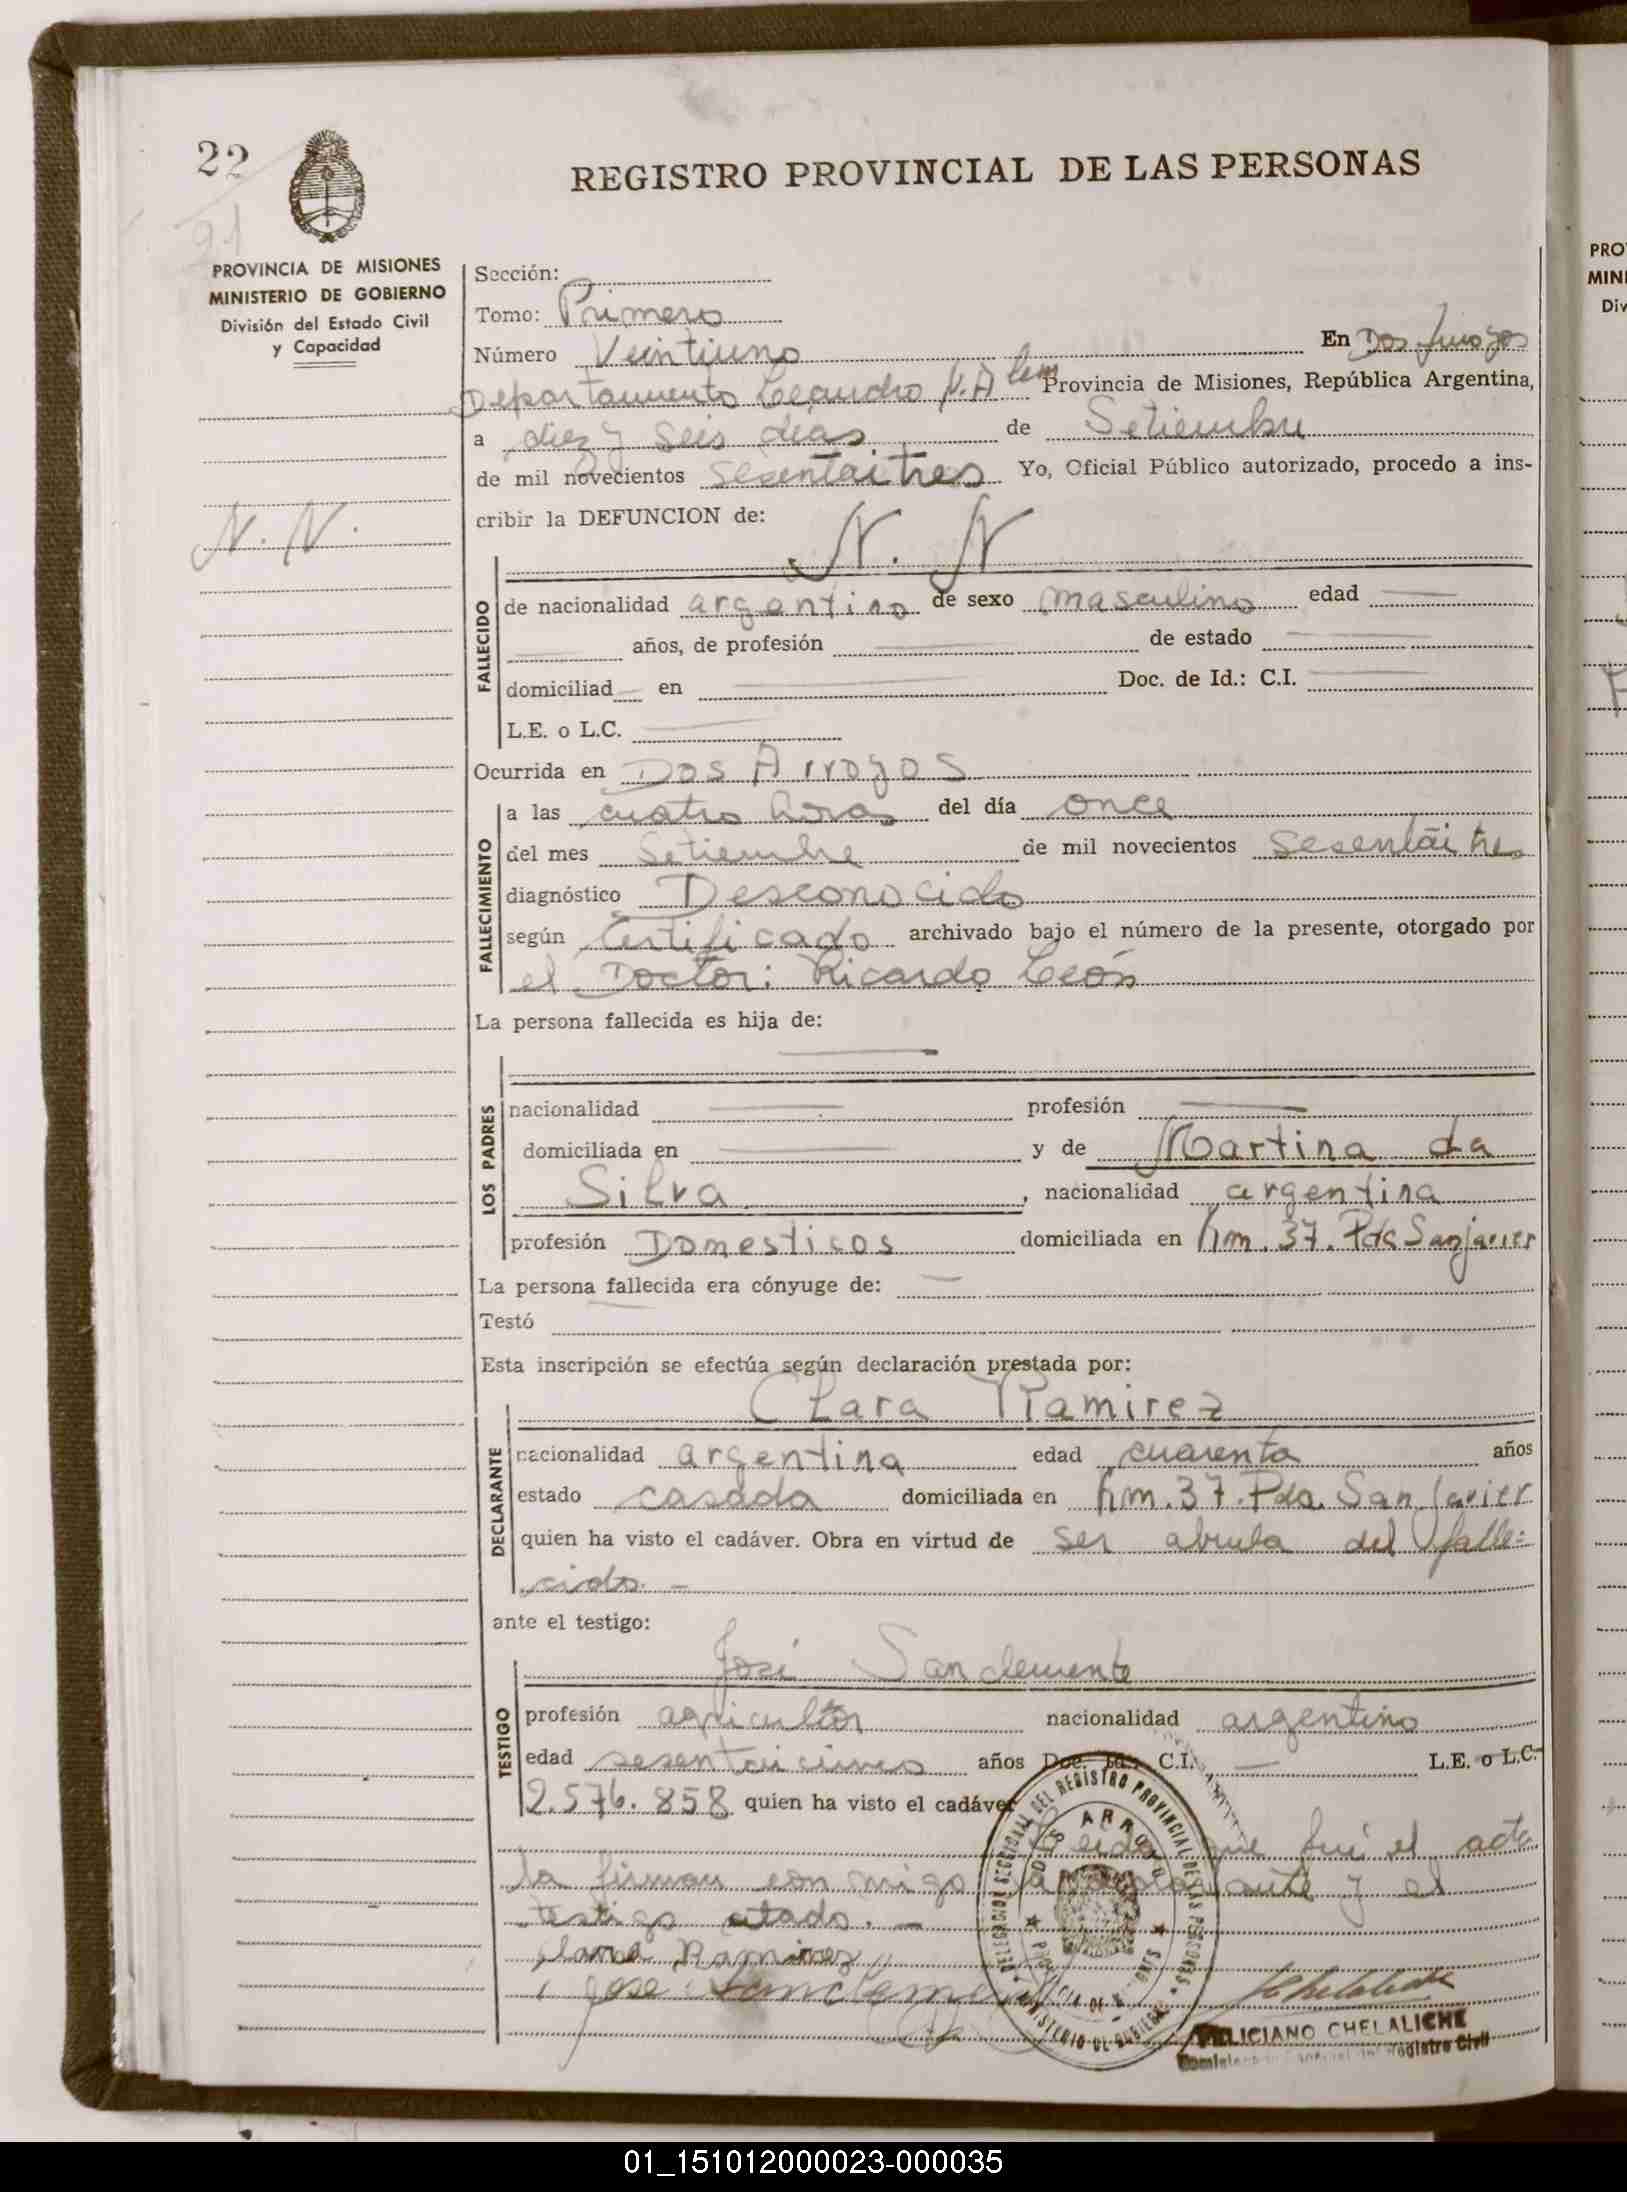 22
21
REGISTRO PROVINCIAL DE LAS PERSONAS
PROVINCIA DE MISIONES
MINISTERIO DE GOBIERNO
División del Estado Civil
y Capacidad
N. N.
Sección:
Tomo: Primero
Número Veintiuno En Dos Arroyos
Departamento Leandro N. Alem Provincia de Misiones, República Argentina,
a diez y seis días de Setiembre
de mil novecientos sesentaitres Yo, Oficial Público autorizado, procedo a ins-
cribir la DEFUNCION de:
N. N
FALLECIDO
de nacionalidad argentino de sexo masculino edad —
— años, de profesión — de estado —
domiciliad— en — Doc. de Id.: C.I. —
L.E. o L.C. —
Ocurrida en Dos Arroyos
FALLECIMIENTO
a las cuatro horas del día once
del mes Setiembre de mil novecientos sesentaitres
diagnóstico Desconocido
según Certificado archivado bajo el número de la presente, otorgado por
el Doctor: Ricardo León
La persona fallecida es hija de:
—
LOS PADRES
nacionalidad — profesión —
domiciliada en — y de Martina da
Silva, nacionalidad argentina
profesión Domesticos domiciliada en km. 37. Pda San javier
La persona fallecida era cónyuge de: —
Testó
Esta inscripción se efectúa según declaración prestada por:
Clara Ramirez
DECLARANTE
nacionalidad argentina edad cuarenta años
estado casada domiciliada en km. 37. Pda. San Javier
quien ha visto el cadáver. Obra en virtud de ser abuela del falle=
cido. —
ante el testigo:
José Sanclemente
TESTIGO
profesión agricultor nacionalidad argentino
edad sesentaicinco años Doc. Id.: C.I. — L.E. o L.C.
2.576.858 quien ha visto el cadáver
Leida que fué el acta
la firman con migo la declarante y el
testigo citado. —
Clara Ramirez
Jose Sanclemente
DELEGACION SECCIONAL DEL REGISTRO PROVINCIAL DE LAS PERSONAS
DOS ARROYOS
PROVINCIA DE MISIONES
MINISTERIO DE GOBIERNO
FChelaliche
FELICIANO CHELALICHE
Registro Civil
PRO
MINI
Div
01_151012000023-000035